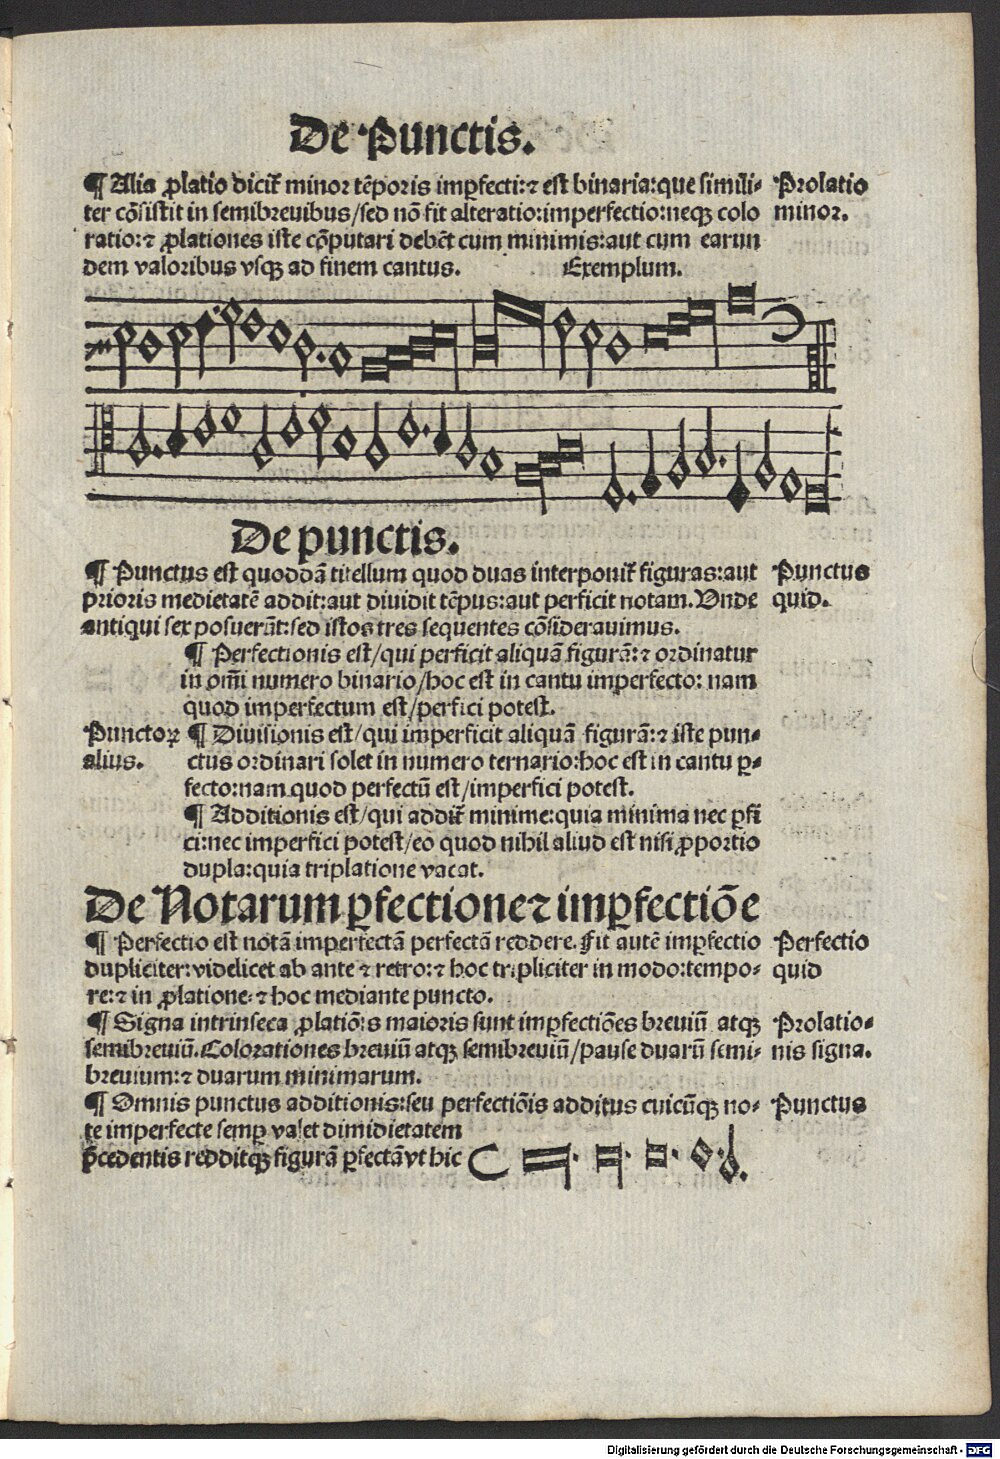 De Punctis.
¶ Alia ꝓlatio dicit᷑ minor tẽporis imꝑfecti:⁊ est binaria:que simili⸗
ter cõsistit in semibreuibus/sed nõ fit alteratio:imperfectio:neqꝫ colo
ratio:⁊ ꝓlationes iste cõputari debẽt cum minimis:aut cum earun
dem valoribus vsqꝫ ad finem cantus. Exemplum.
Prolatio
minor.
De punctis.
¶ Punctus est quoddã titellum quod duas interponit᷑ figuras:aut
prioris medietatẽ addit:aut diuidit tẽpus:aut perficit notam. Vnde
antiqui sex posuerũt:sed istos tres sequentes cõsiderauimus.
Punctus
quid.
¶ Perfectionis est/qui perficit aliquã figurã:⁊ ordinatur
in om̃i numero binario/hoc est in cantu imperfecto: nam
quod imperfectum est/perfici potest.
Punctoꝝ
alius.
¶ Diuisionis est/qui imperficit aliquã figurã:⁊ iste pun⸗
ctus ordinari solet in numero ternario:hoc est in cantu ꝑ⸗
fecto:nam quod perfectũ est/imperfici potest.
¶ Additionis est/qui addit᷑ minime:quia minima nec ꝑfi
ci:nec imperfici potest/eo quod nihil aliud est nisi ꝓportio
dupla:quia triplatione vacat.
De Notarum ꝑfectione ⁊ imꝑfectiõe
¶ Perfectio est notã imperfectã perfectã reddere. Fit autẽ imꝑfectio
dupliciter:videlicet ab ante ⁊ retro:⁊ hoc tripliciter in modo:tempo⸗
re:⁊ in ꝓlatione:⁊ hoc mediante puncto.
Perfectio
quid
¶ Signa intrinseca ꝓlatiõis maioris sunt imꝑfectiões breuiũ atqꝫ
semibreuiũ. Colorationes breuiũ atqꝫ semibreuiũ/pause duarũ semi⸗
breuium:⁊ duarum minimarum.
Prolatio⸗
nis signa.
¶ Omnis punctus additionis:seu perfectiõis additus cuicũqꝫ no⸗
te imperfecte semꝑ valet dimidietatem
p̃cedentis redditqꝫ figurã ꝑfectã vt hic
Punctus
Digitalisierung gefördert durch die Deutsche Forschungsgemeinschaft - DFG